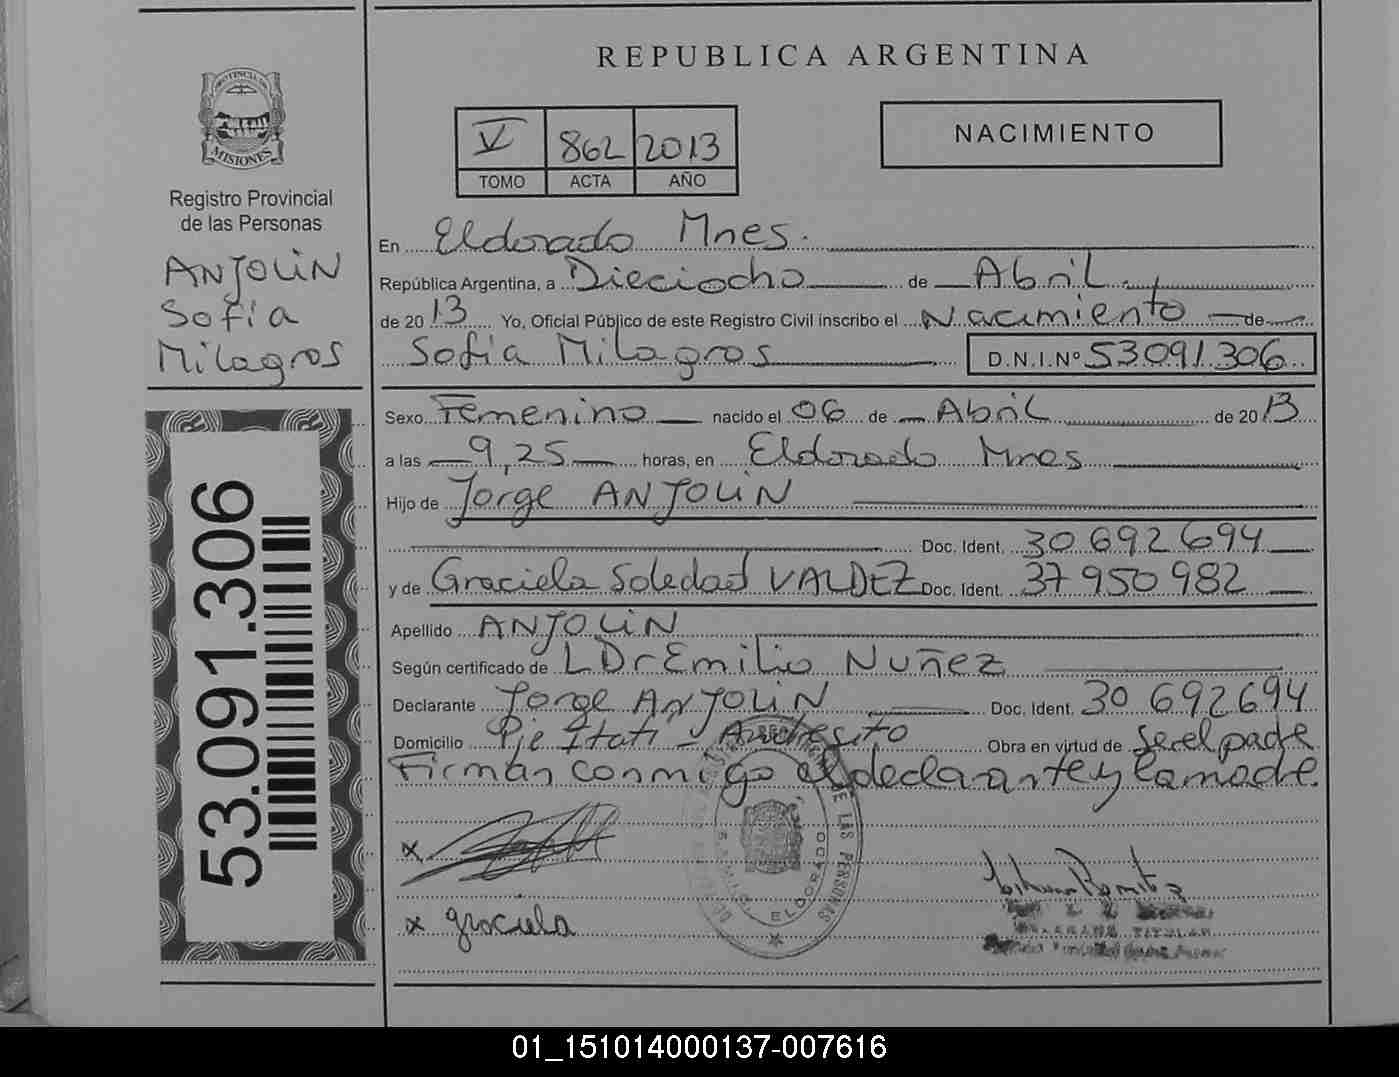 REPUBLICA ARGENTINA
PROVINCIA DE
MISIONES
Registro Provincial
de las Personas
V 862 2013
TOMO ACTA AÑO
NACIMIENTO
ANJOLIN
Sofía
Milagros
En Eldorado Mnes.
República Argentina, a Dieciocho de Abril
de 2013 Yo, Oficial Público de este Registro Civil inscribo el Nacimiento de
Sofía Milagros D.N.I.Nº 53091.306
Sexo Femenino nacido el 06 de Abril de 2013
a las 9,25 horas, en Eldorado Mnes
Hijo de Jorge ANJOLIN
Doc. Ident. 30 692 694
y de Graciela Soledad VALDEZ Doc. Ident. 37 950 982
Apellido ANJOLIN
Según certificado de LDr Emilio Nuñez
Declarante Jorge ANJOLIN Doc. Ident. 30 692694
Domicilio Pje Itatí - Andresito Obra en virtud de ser el padre
Firman conmigo el declarante y la madre.
x
x graciela
DE LAS PERSONAS
ELDORADO
TITULAR
53.091.306
01_151014000137-007616